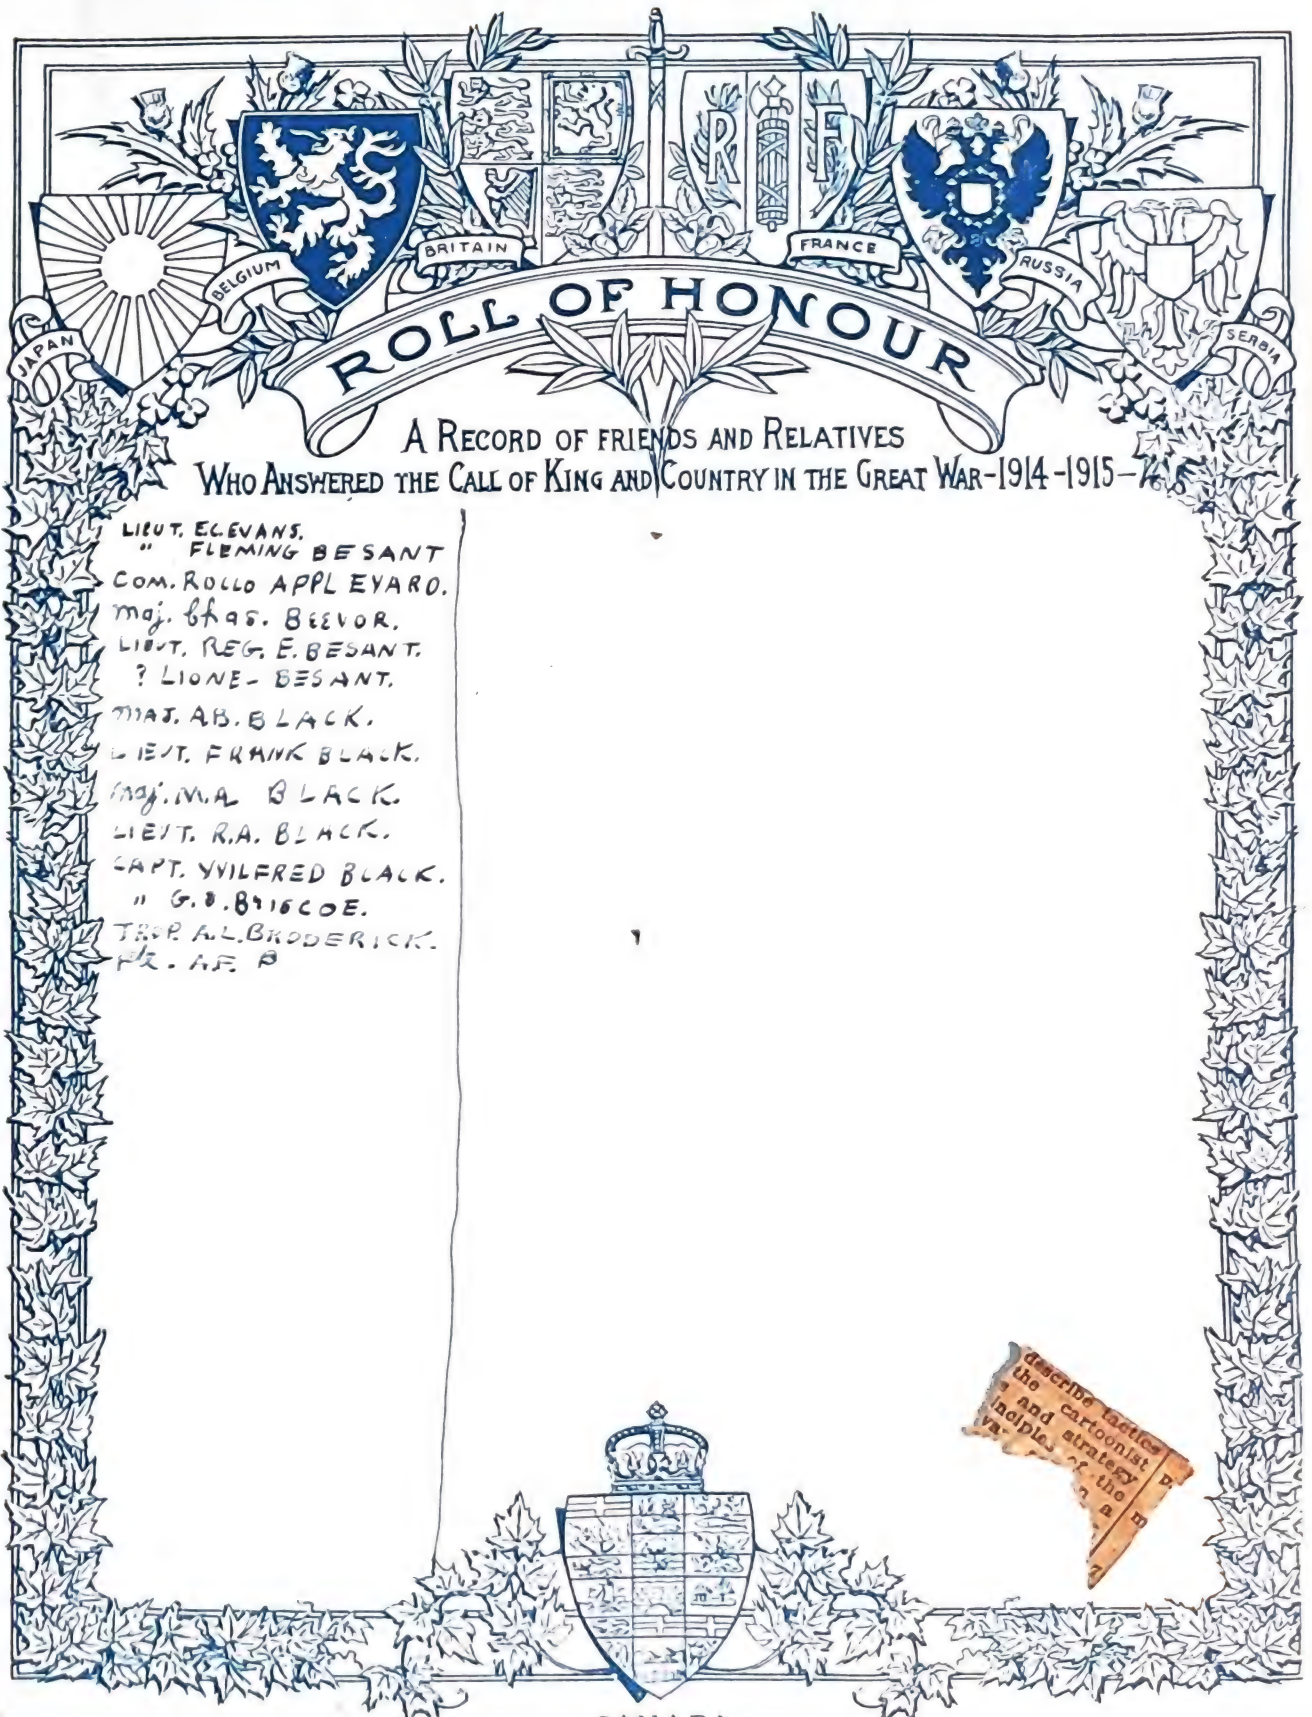 BRITAIN
FRANCE
BELGIUM
RUSSIA
JAPAN
SERBIA
ROLL OF HONOUR
A RECORD OF FRIENDS AND RELATIVES
WHO ANSWERED THE CALL OF KING AND COUNTRY IN THE GREAT WAR-1914-1915-
LIEUT. E.C. EVANS.
" FLEMING BESANT
COM. ROLLO APPLEYARD.
Maj. Chas. BEEVOR.
LIEUT. REG. E. BESANT.
? LIONEL BESANT.
MAJ. A.B. BLACK.
LIEUT. FRANK BLACK.
Maj. M.A. BLACK.
LIEUT. R.A. BLACK.
CAPT. WILFRED BLACK.
" G. BRISCOE.
TROP. A.L. BRODERICK.
A.F. B
describe tactics
the cartoonist
s and strategy
inciples of the
va
n a m
7